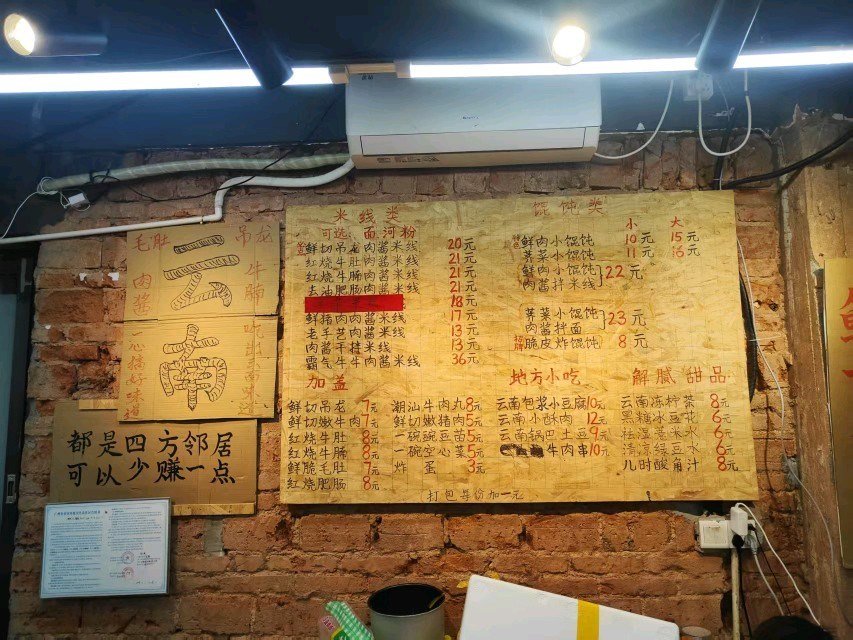 毛肚
吊龙
五
肉酱
牛腩
喜
都是四方邻居
可以少赚一点
米线类
可选:面河粉
鲜切吊龙肉酱米线 20元
红烧牛肚肉酱米线 21元
红烧牛腩肉酱米线 21元
去油肥肠肉酱米线 21元
18元
鲜猪肉肉酱米线 17元
老手艺肉酱米线 13元
肉酱干拌米线 13元
霸气牛牛肉酱米线 36元
馄饨类
小 大
鲜肉小馄饨 10元 15元
荠菜小馄饨 11元 16元
鲜肉小馄饨
肉酱拌米线 22元
荠菜小馄饨
肉酱拌面 23元
脆皮炸馄饨 8元
加盖
鲜切吊龙 7元
鲜切嫩牛肉 7元
红烧牛肚 8元
红烧牛腩 8元
鲜脆毛肚 7元
红烧肥肠 8元
潮汕牛肉丸 8元
鲜切嫩猪肉 5元
一碗豌豆苗 5元
一碗空心菜 5元
炸蛋 3元
地方小吃
云南包浆小豆腐 10元
云南小酥肉 12元
云南锅巴土豆 9元
牛肉串 10元
解腻甜品
云南冻柠茶 8元
黑糖冰浆 6元
祛湿薏米水 6元
清凉绿豆水 6元
儿时酸角汁 8元
打包每份加一元